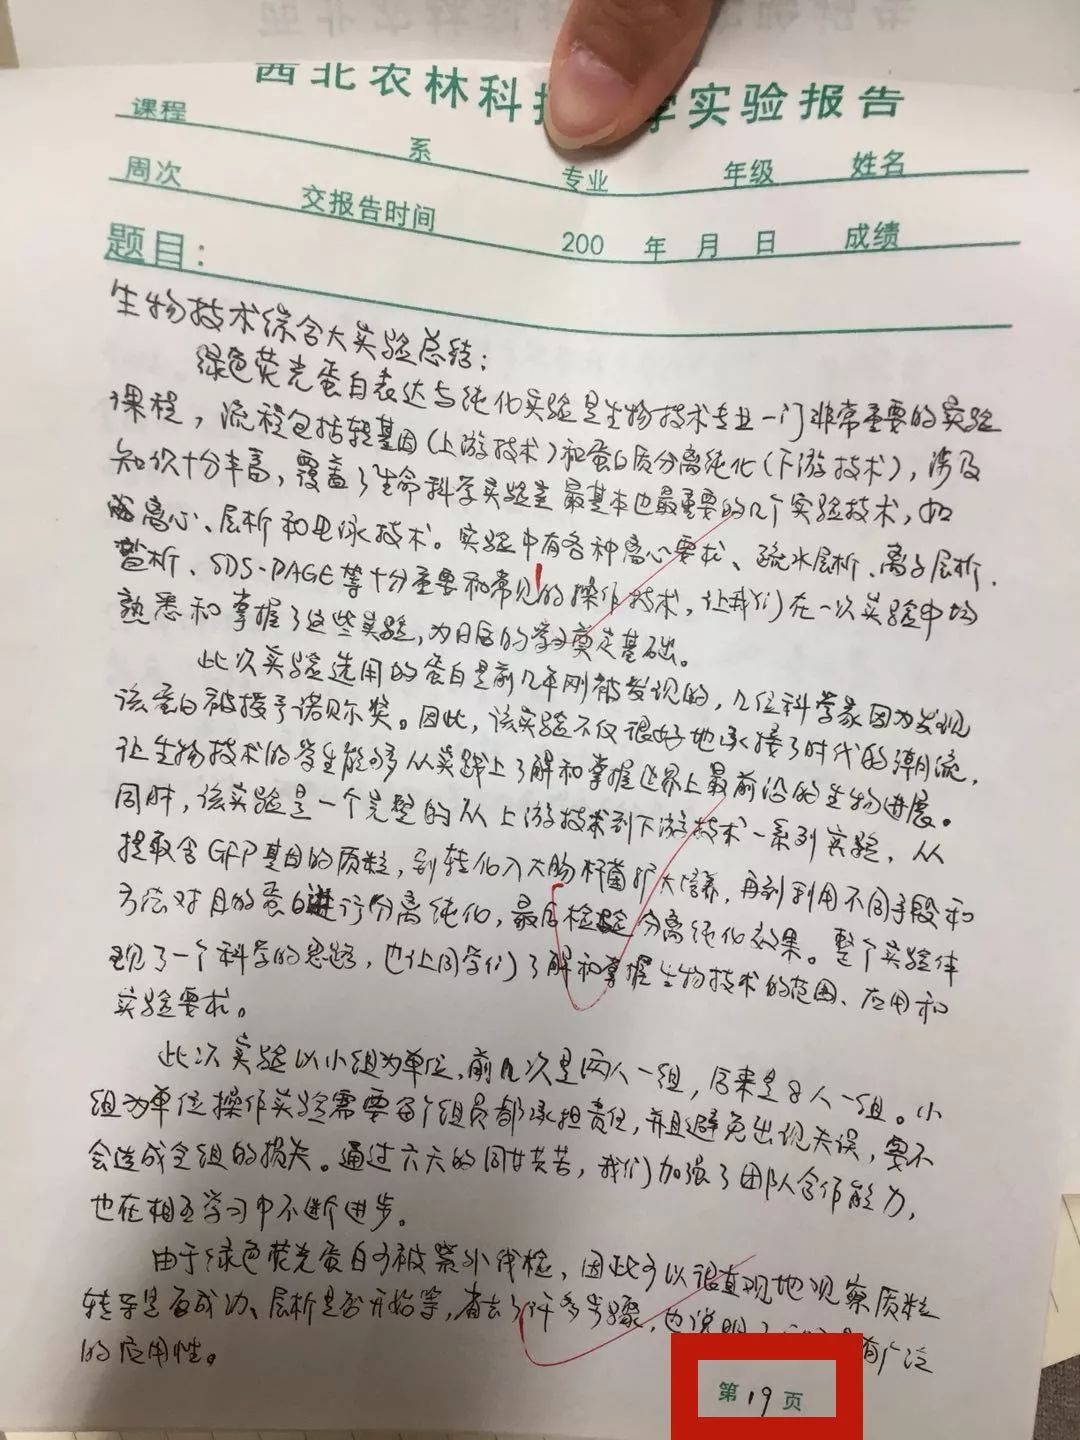 西北农林科技 学实验报告
课程 系 专业 年级 姓名
周次 交报告时间 200 年 月 日 成绩
题目：
生物技术综合大实验总结：
绿色荧光蛋白表达与纯化实验是生物技术专业一门非常重要的实验
课程，流程包括转基因(上游技术)和蛋白质分离纯化(下游技术)，涉及
知识十分丰富，覆盖了生命科学实验室最基本也最重要的几个实验技术，如
离心、层析和电泳技术。实验中有各种离心要求、疏水层析、离子层析、
SDS-PAGE等十分重要和常见的操作技术，让我们在一次实验中均
熟悉和掌握了这些实验，为日后的学习奠定基础。
此次实验选用的蛋白是前几年刚被发现的，几位科学家因为发现
该蛋白被授予诺贝尔奖。因此，该实验不仅很好地承接了时代的潮流，
让生物技术的学生能够从实践上了解和掌握世界上最前沿的生物进展。
同时，该实验是一个完整的从上游技术到下游技术一系列实验，从
提取含GFP基因的质粒，到转化入大肠杆菌扩大培养，再到利用不同手段和
方法对目的蛋白进行分离纯化，最后检验分离纯化效果。整个实验体
现了一个科学的思路，也让同学们了解和掌握生物技术的范围、应用和
实验要求。
此次实验以小组为单位，前几次是两人一组，后来是8人一组。小
组为单位操作实验需要每个组员都承担责任，并且避免出现失误，要不
会造成全组的损失。通过六天的同甘共苦，我们加强了团队合作能力，
也在相互学习中不断进步。
由于绿色荧光蛋白可被紫外线检，因此可以很直观地观察质粒
转导是否成功、层析是否开始等，省去了许多步骤，也说明了 有广泛
的应用性。
第19页